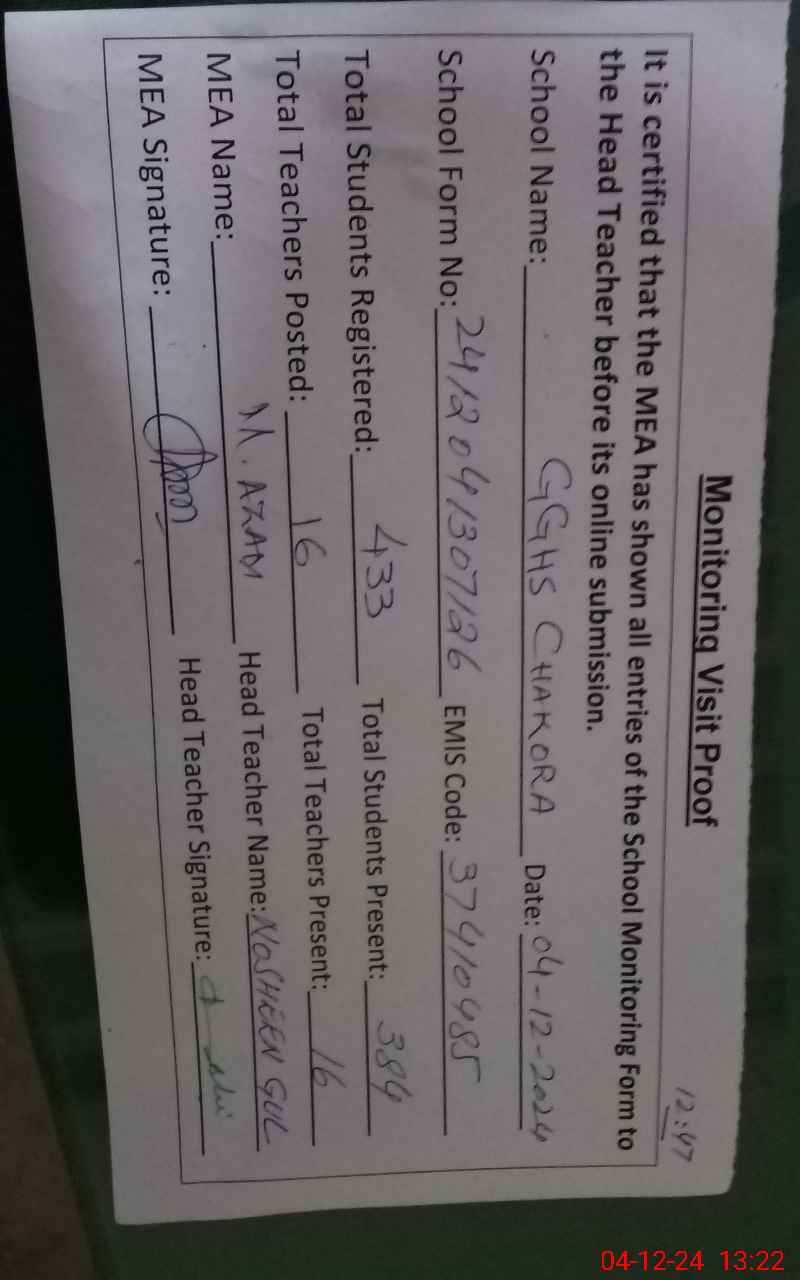 12:47
Monitoring Visit Proof
It is certified that the MEA has shown all entries of the School Monitoring Form to
the Head Teacher before its online submission.
School Name: GGHS CHAKORA Date: 04-12-2024
School Form No: 2412041307126 EMIS Code: 37410485
Total Students Registered: 433 Total Students Present: 384
Total Teachers Posted: 16 Total Teachers Present: 16
MEA Name: M. AZAM Head Teacher Name: NOSHEEN GUL
MEA Signature: Head Teacher Signature:
04-12-24 13:22